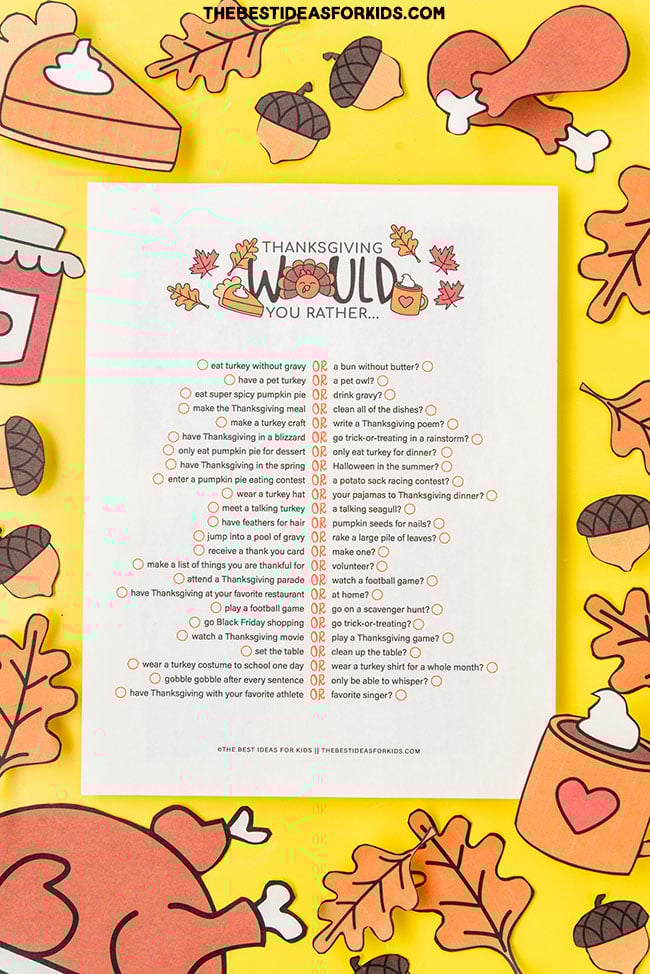 THEBESTIDEASFORKIDS.COM
THANKSGIVING
WOULD
YOU RATHER...
eat turkey without gravy OR a bun without butter?
have a pet turkey OR a pet owl?
eat super spicy pumpkin pie OR drink gravy?
make the Thanksgiving meal OR clean all of the dishes?
make a turkey craft OR write a Thanksgiving poem?
have Thanksgiving in a blizzard OR go trick-or-treating in a rainstorm?
only eat pumpkin pie for dessert OR only eat turkey for dinner?
have Thanksgiving in the spring OR Halloween in the summer?
enter a pumpkin pie eating contest OR a potato sack racing contest?
wear a turkey hat OR your pajamas to Thanksgiving dinner?
meet a talking turkey OR a talking seagull?
have feathers for hair OR pumpkin seeds for nails?
jump into a pool of gravy OR rake a large pile of leaves?
receive a thank you card OR make one?
make a list of things you are thankful for OR volunteer?
attend a Thanksgiving parade OR watch a football game?
have Thanksgiving at your favorite restaurant OR at home?
play a football game OR go on a scavenger hunt?
go Black Friday shopping OR go trick-or-treating?
watch a Thanksgiving movie OR play a Thanksgiving game?
set the table OR clean up the table?
wear a turkey costume to school one day OR wear a turkey shirt for a whole month?
gobble gobble after every sentence OR only be able to whisper?
have Thanksgiving with your favorite athlete OR favorite singer?
©THE BEST IDEAS FOR KIDS || THEBESTIDEASFORKIDS.COM